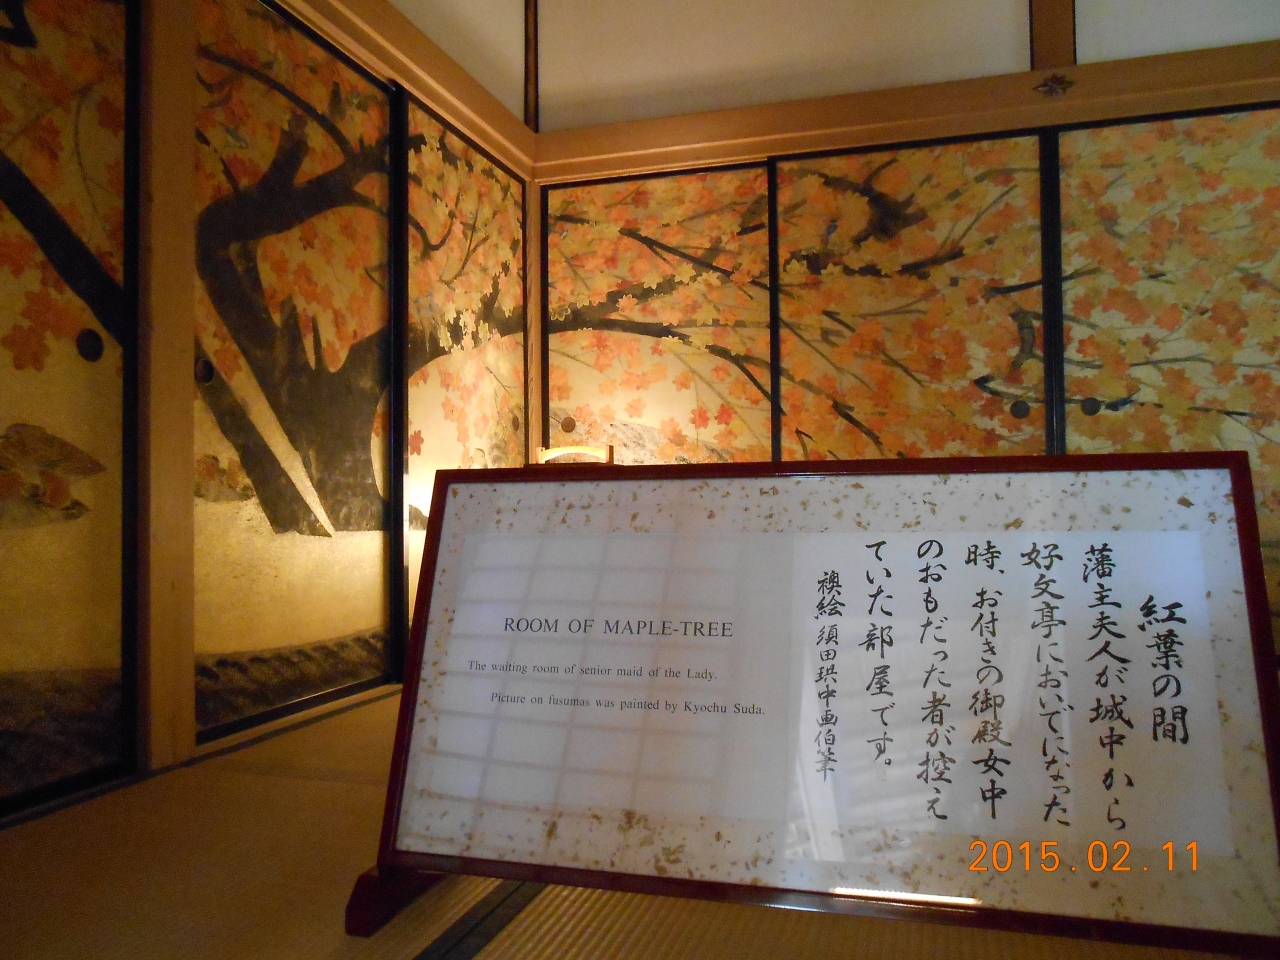 ROOM OF MAPLE-TREE
The waiting room of senior maid of the Lady.
Picture on fusumas was painted by Kyochu Suda.
紅葉の間
藩主夫人が城中から
好文亭においでになった
時、お付きの御殿女中
のおもだった者が控え
ていた部屋です。
襖絵 須田珙中画伯筆
2015.02.11